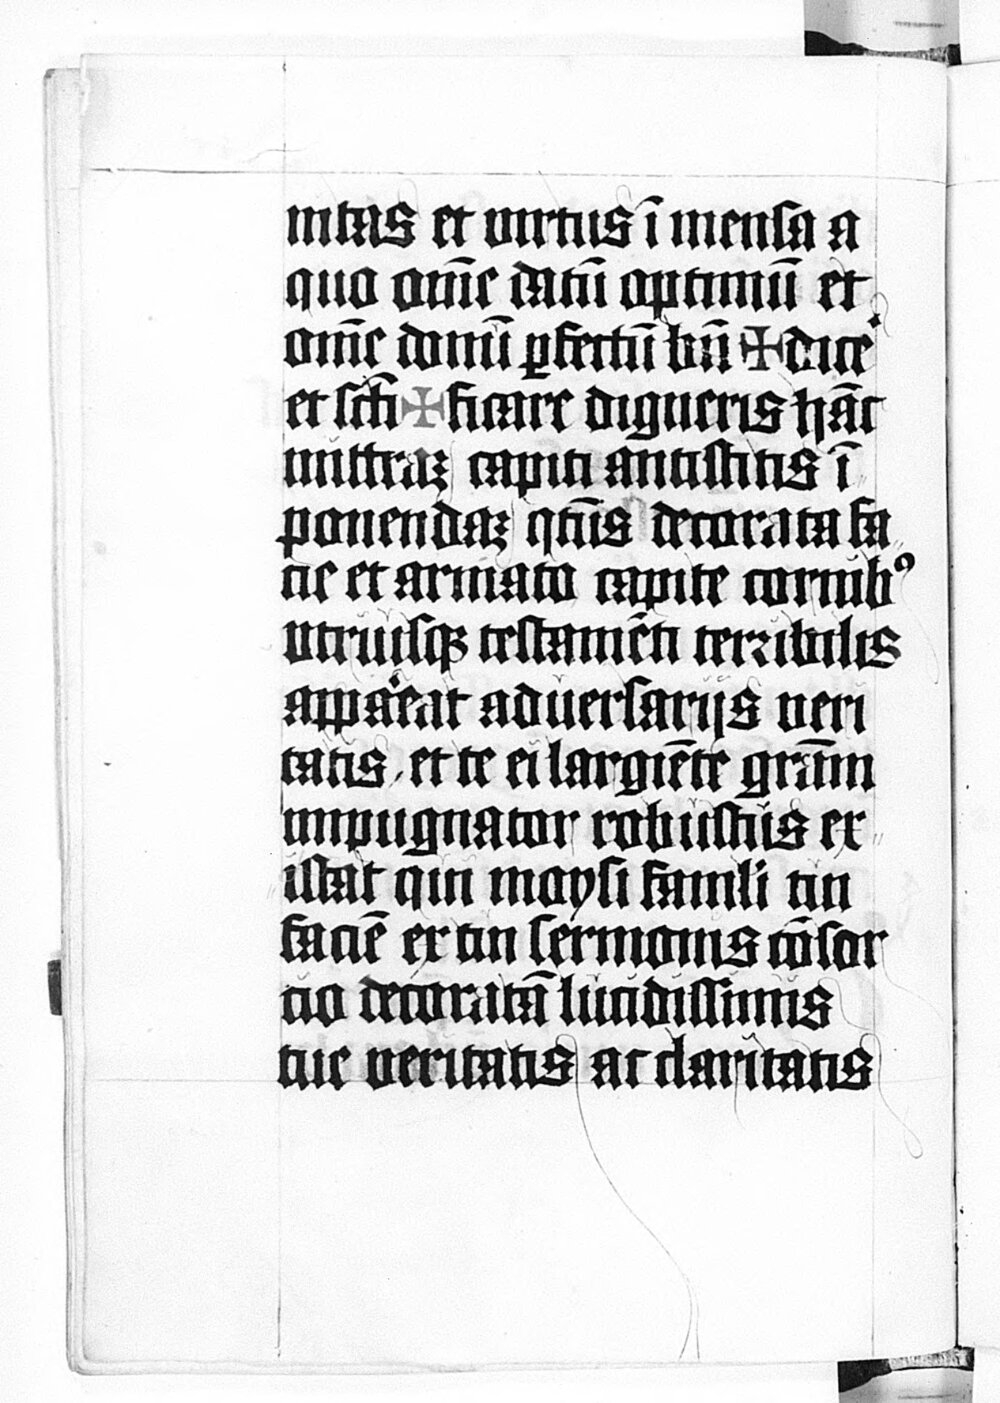 nitas et virtus ī mensa a
quo om̄e datū optimū et
om̄e donū ꝑfectū bn̄ ✠ dice⁾
et sc̄ti ✠ ficare digneris hāc
mittraꝫ capiti antistitis ī
ponendaꝫ qt̄nus decorata fa
cie et armato capite cornibꝰ
vtriusqꝫ testamēti terribilis
appareat aduersarijs veri
tatis, et te ei largiēte grām
impugnator robustus ex
istat qui moysi famuli tui
faciē ex tui sermonis cōsor
cio decoratā lucidissimis
tue veritatis ac claritatis